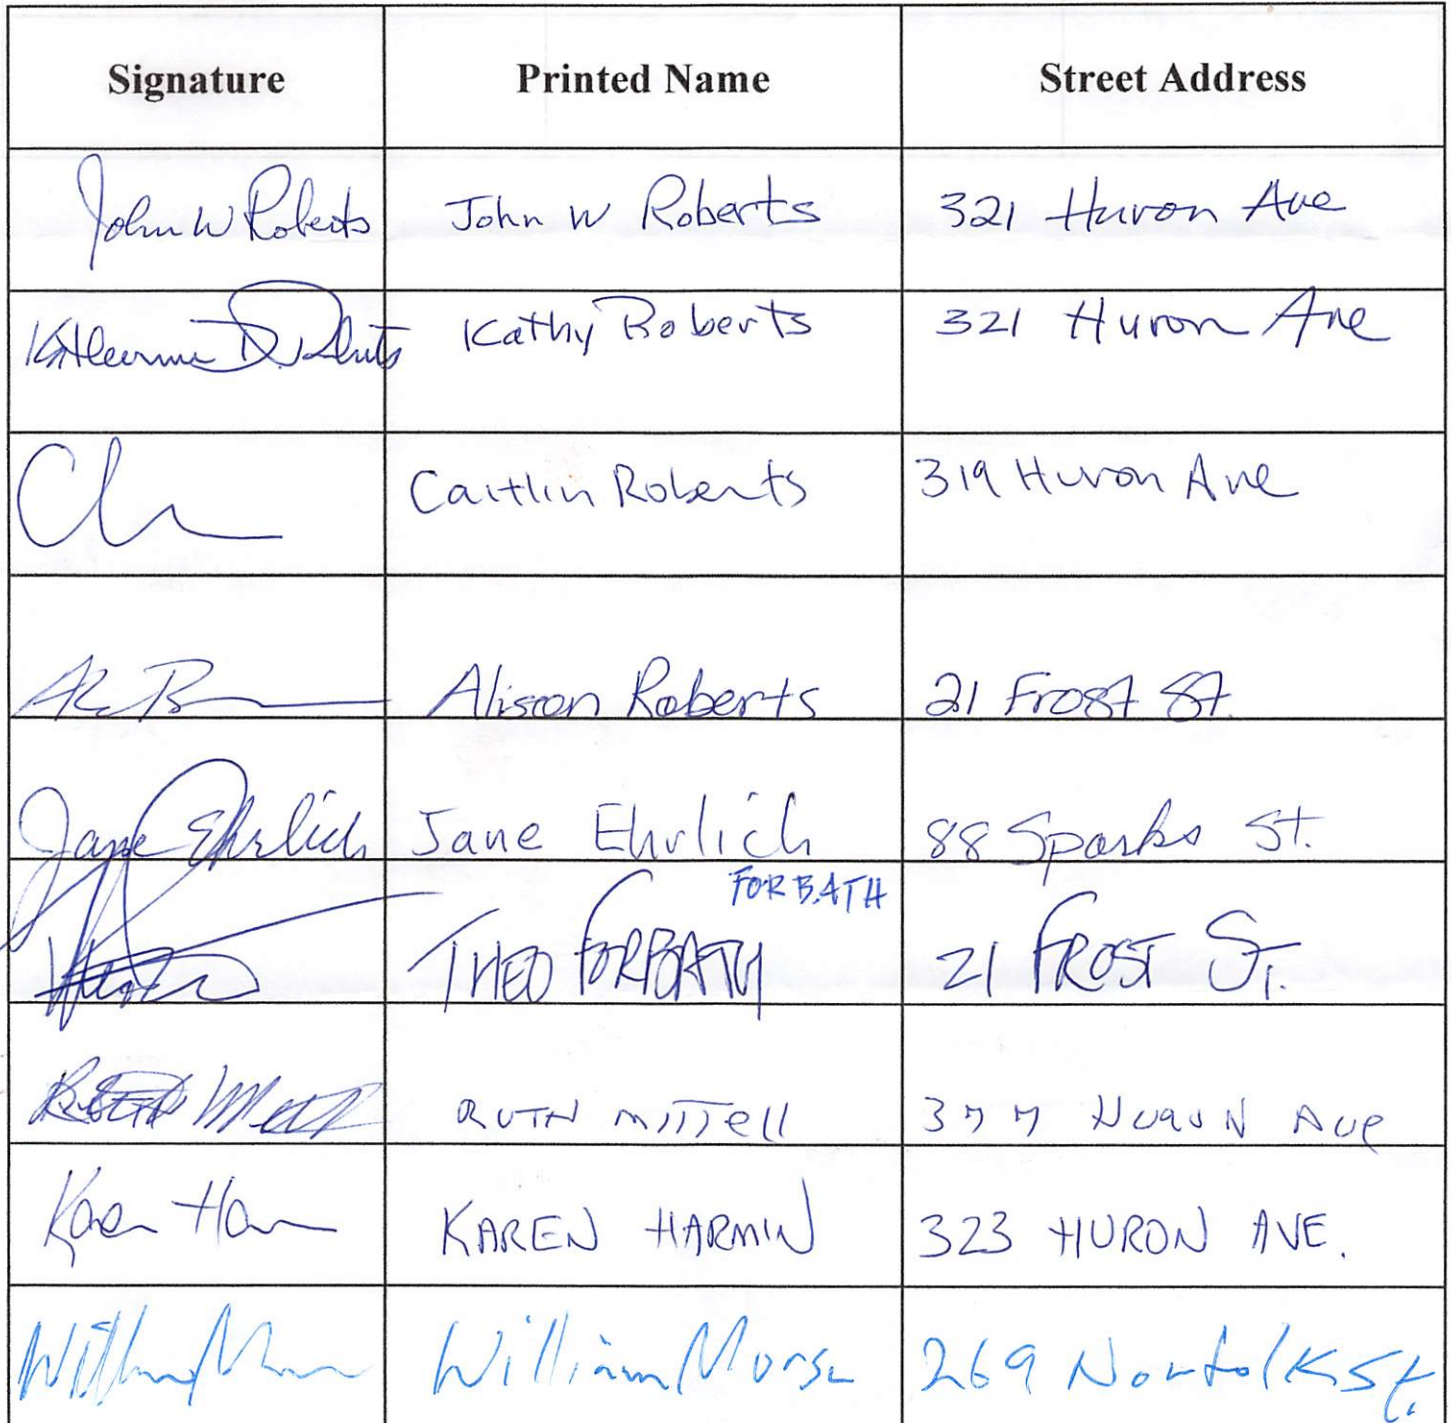 Signature Printed Name Street Address
John W Roberts John W Roberts 321 Huron Ave
Katherine D. Roberts Kathy Roberts 321 Huron Ave
Caitlin Roberts 319 Huron Ave
Alison Roberts 21 Frost St.
Jane Ehrlich Jane Ehrlich 88 Sparks St.
FORBATH
THEO FORBATH 21 FROST ST.
RUTH MITTell 377 HURON Ave
Karen Har KAREN HARMIN 323 HURON AVE.
William Morse 269 Norfolk St.